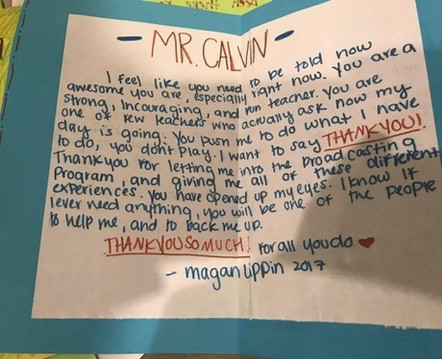 - MR. CALVIN -
I feel like you need to be told how
awesome you are, especially right now. You are a
strong, incouraging, and fun teacher. You are
one of few teachers who actually ask how my
day is going. You push me to do what I have
to do, you don't play. I want to say THANK YOU!
Thank you for letting me into the broadcasting
Program, and giving me all of these different
experiences. You have opened up my eyes. I know if
I ever need anything, you will be one of the people
to help me, and to back me up.
THANK YOU SO MUCH! for all you do ❤
- magan lippin 2017